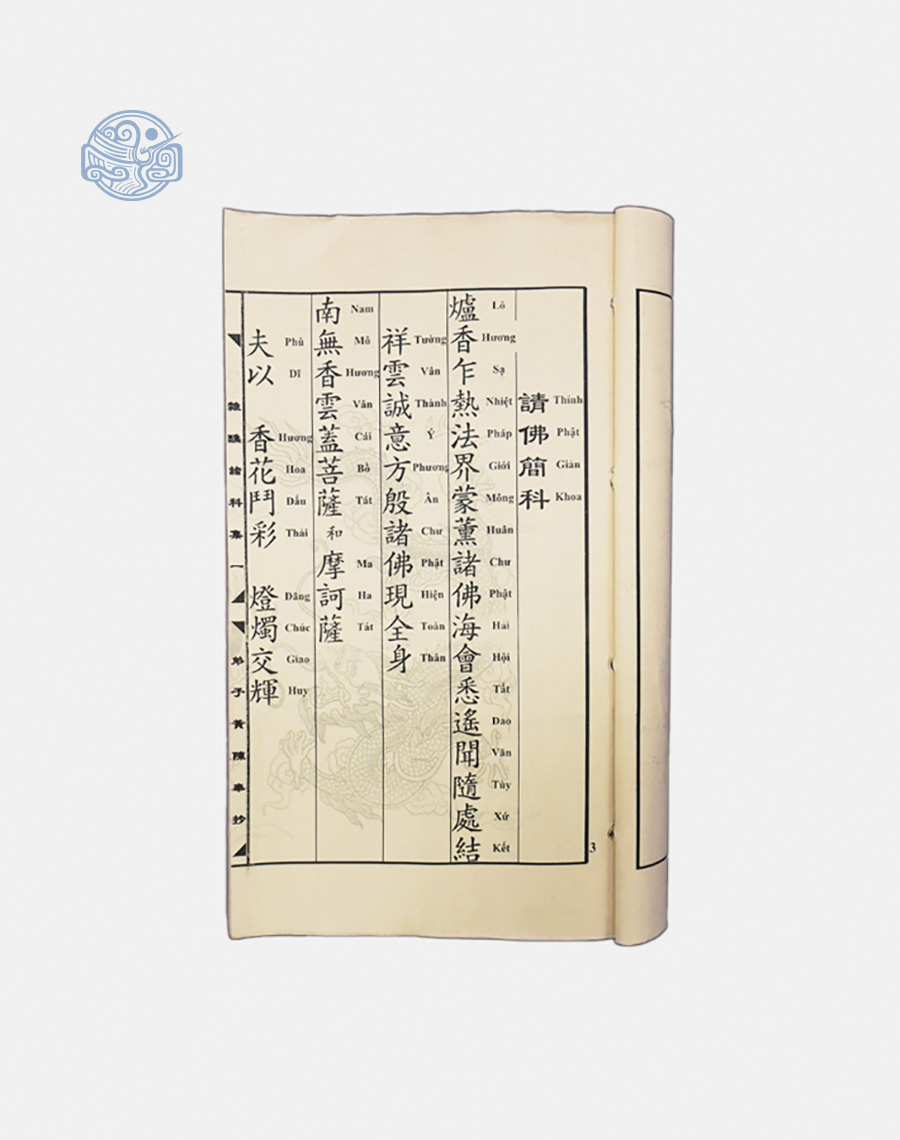 請佛簡科
Thỉnh Phật Giản Khoa
爐香乍熱法界蒙薰諸佛海會悉遙聞隨處結
Lô Hương Sạ Nhiệt Pháp Giới Mông Huân Chư Phật Hải Hội Tất Dao Văn Tùy Xứ Kết
祥雲誠意方殷諸佛現全身
Tường Vân Thành Ý Phương Ân Chư Phật Hiện Toàn Thân
南無香雲蓋菩薩和摩訶薩
Nam Mô Hương Vân Cái Bồ Tát Ma Ha Tát
夫以 香花鬥彩 燈燭交輝
Phù Dĩ Hương Hoa Dấu Thái Đăng Chúc Giao Huy
諸科集一
弟子黃陳奉抄
3